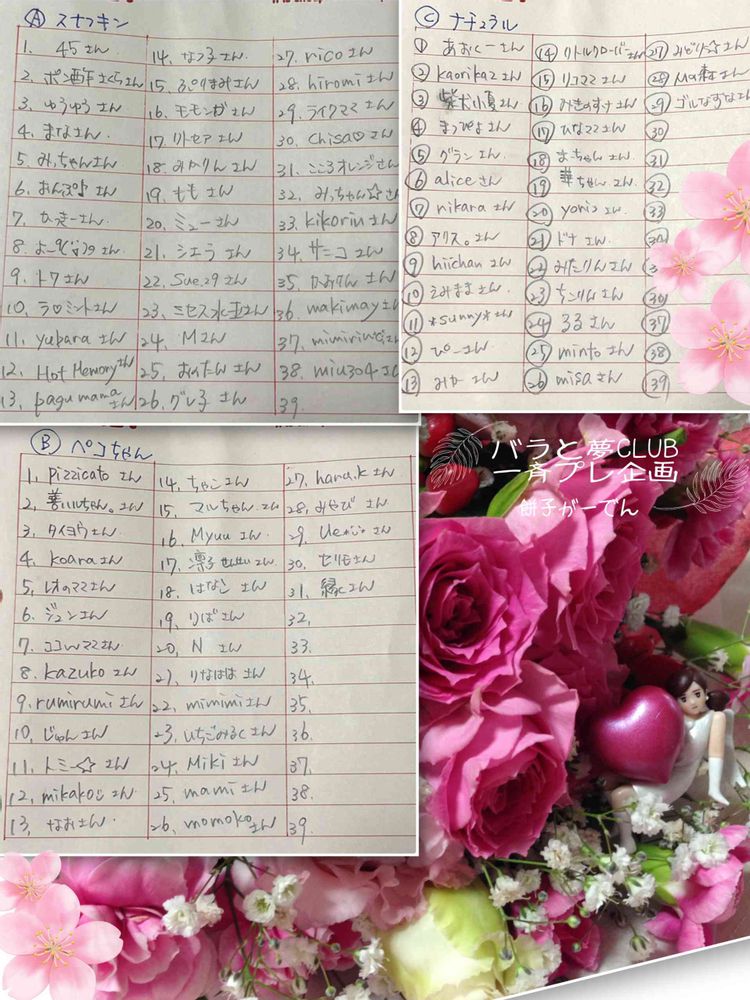 Ⓐ スナフキン
1. 45さん
2. ポン酢さくらさん
3. ゆうゆうさん
4. まなさん
5. みっちゃんさん
6. おんぷ♪さん
7. ひっきーさん
9. トワさん
10. ラロミントさん
11. yubaraさん
12. Hot Memoryさん
13. pagumamaさん
14. なつ子さん
15. ぷりまみさん
16. モモンガさん
17. リトセアさん
18. みかりんさん
19. ももさん
20. ミューさん
21. シエラさん
22. Sue.29さん
23. ミセス水玉さん
24. Mさん
25. おめたんさん
26. グレ子さん
27. ricoさん
28. hiromiさん
29. ライクママさん
30. chisa♡さん
31. こころオレンジさん
32. みっちゃん☆さん
33. kikorinさん
34. サニコさん
35. かおりんさん
36. makimayさん
37. mimirinさん
38. miu304さん
39
Ⓑ ペコちゃん
1. Pizzicatoさん
3. タイヨウさん
4. koaraさん
5. レオのママさん
6. ジュンさん
7. ココwママさん
8. kazukoさん
9. rumirumiさん
10. じゅんさん
11. トミー☆さん
12. mikakoさん
13. なおさん
14. ちゃこさん
15. マルちゃん.さん
16. Myuuさん
17. 凛子せんせいさん
18. はなこさん
19. りばさん
20. Nさん
21. りなははさん
22. mimimiさん
23. いちごみるくさん
24. Mikiさん
25. mamiさん
26. momokoさん
27. haru.kさん
28. みやびさん
30. セリモさん
31. 縁さん
32.
33.
34.
35.
36.
37.
38.
39.
Ⓒ ナチュラル
① あおくーさん
② kaorikazさん
③ 柴犬小夏さん
④ まっぴよさん
⑤ グランさん
⑥ aliceさん
⑦ nikaraさん
⑧ アリス。さん
⑨ hiichanさん
⑩ えみままさん
⑪ *sunny*さん
⑫ ぴーさん
⑬ みかさん
⑭ リトルクローバーさん
⑮ リコママさん
⑯ みきのすけさん
⑰ ひなママさん
⑱ まちゃんさん
⑲ 華ちゃんさん
⑳ yoriさん
㉑ ドナさん
㉒ みたりんさん
㉓ ちこりんさん
㉔ るるさん
㉕ mintoさん
㉖ misaさん
㉗ みどり☆さん
㉘ Mの森さん
㉙ ゴルなすなさん
㉚
㉛
㉜
㉝
㊲
㊳
㊴
バラと夢CLUB
一斉プレ企画
餅子がーでん